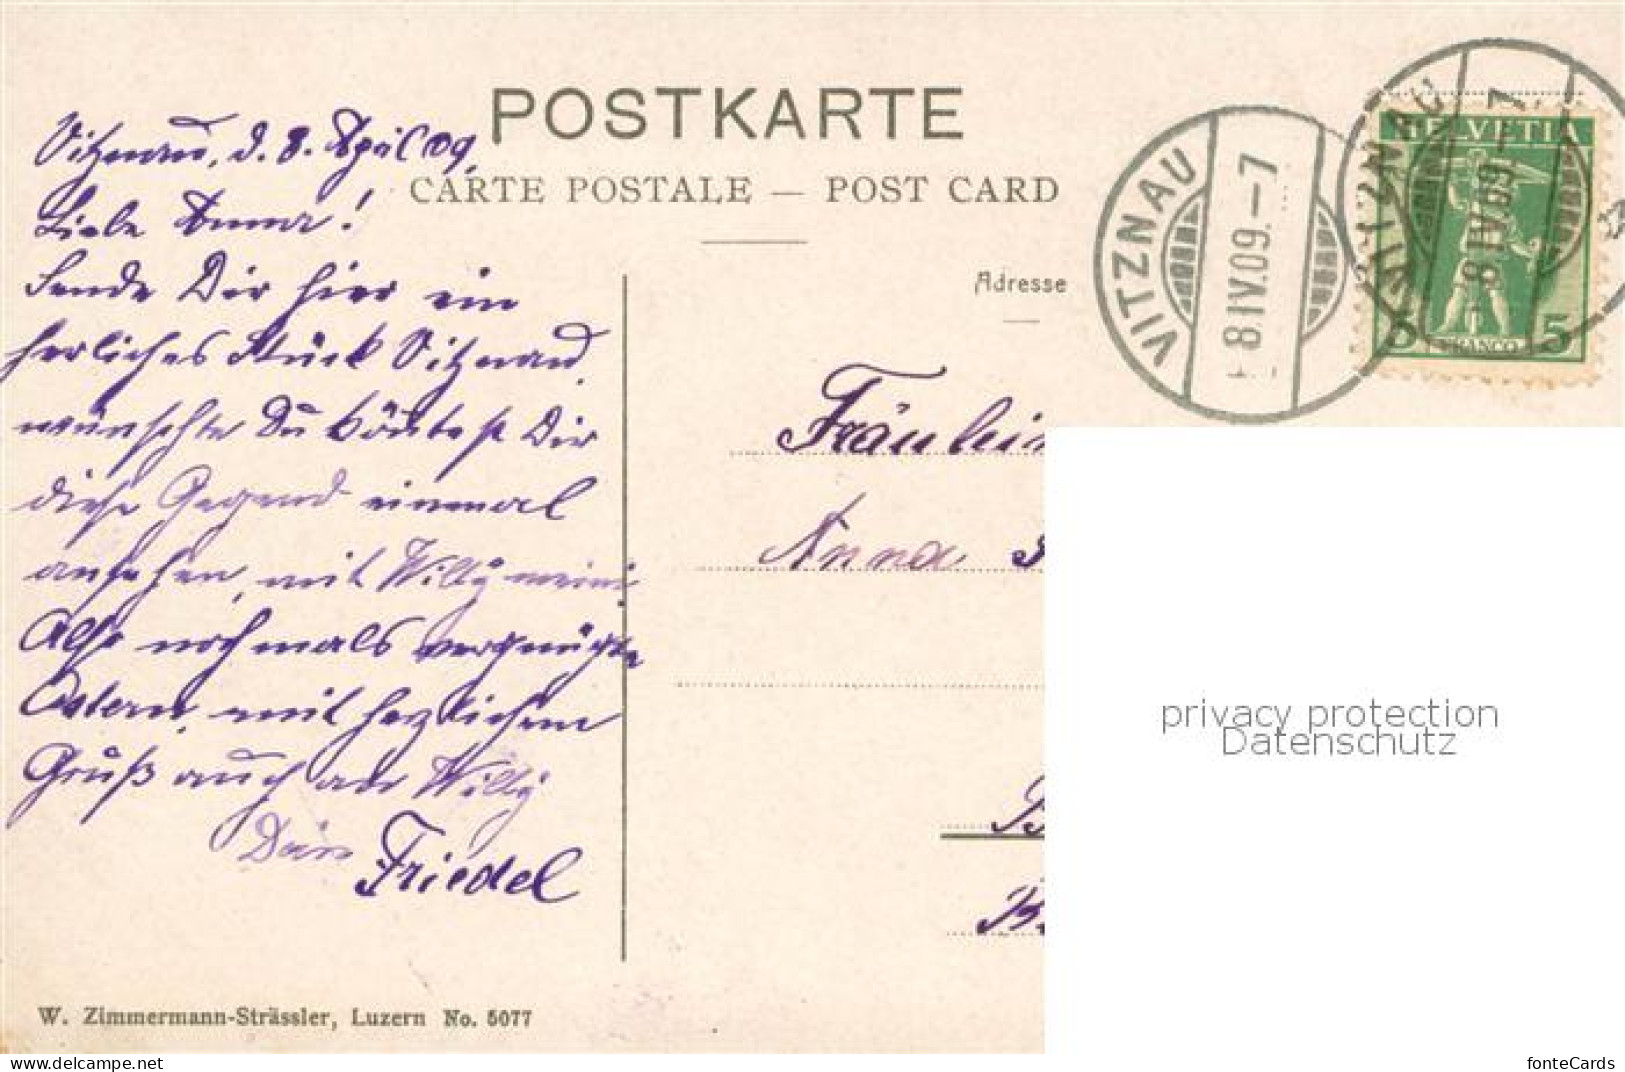 POSTKARTE
CARTE POSTALE — POST CARD
Adresse
VITZNAU
8.IV.09.–7
VITZNAU
8.IV.09.–7
HELVETIA
FRANCO
5 5
Vitznau, d. 8. April 09.
Liebe Anna!
Sende Dir hier ein
herliches Stück Vitznau,
wünschte Du köntest Dir
diese Gegend einmal
ansehen, mit Willy
Also nochmals vergnügte
Ostern, mit herzlichem
Gruß auch an Willy
Dein Friedel
Fräulein
Anna
W. Zimmermann-Strässler, Luzern No. 5077
privacy protection
Datenschutz
fonteCards